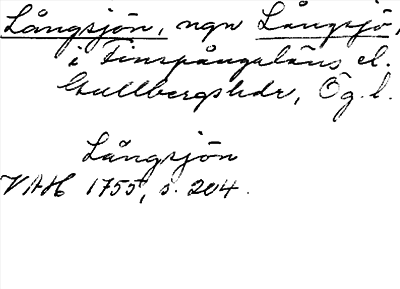 Långsjön, ngn Långsjö,
i Finspångaläns el.
Gullbergshdr, Ög. l.
Långsjön
VAH 1755, s. 204.